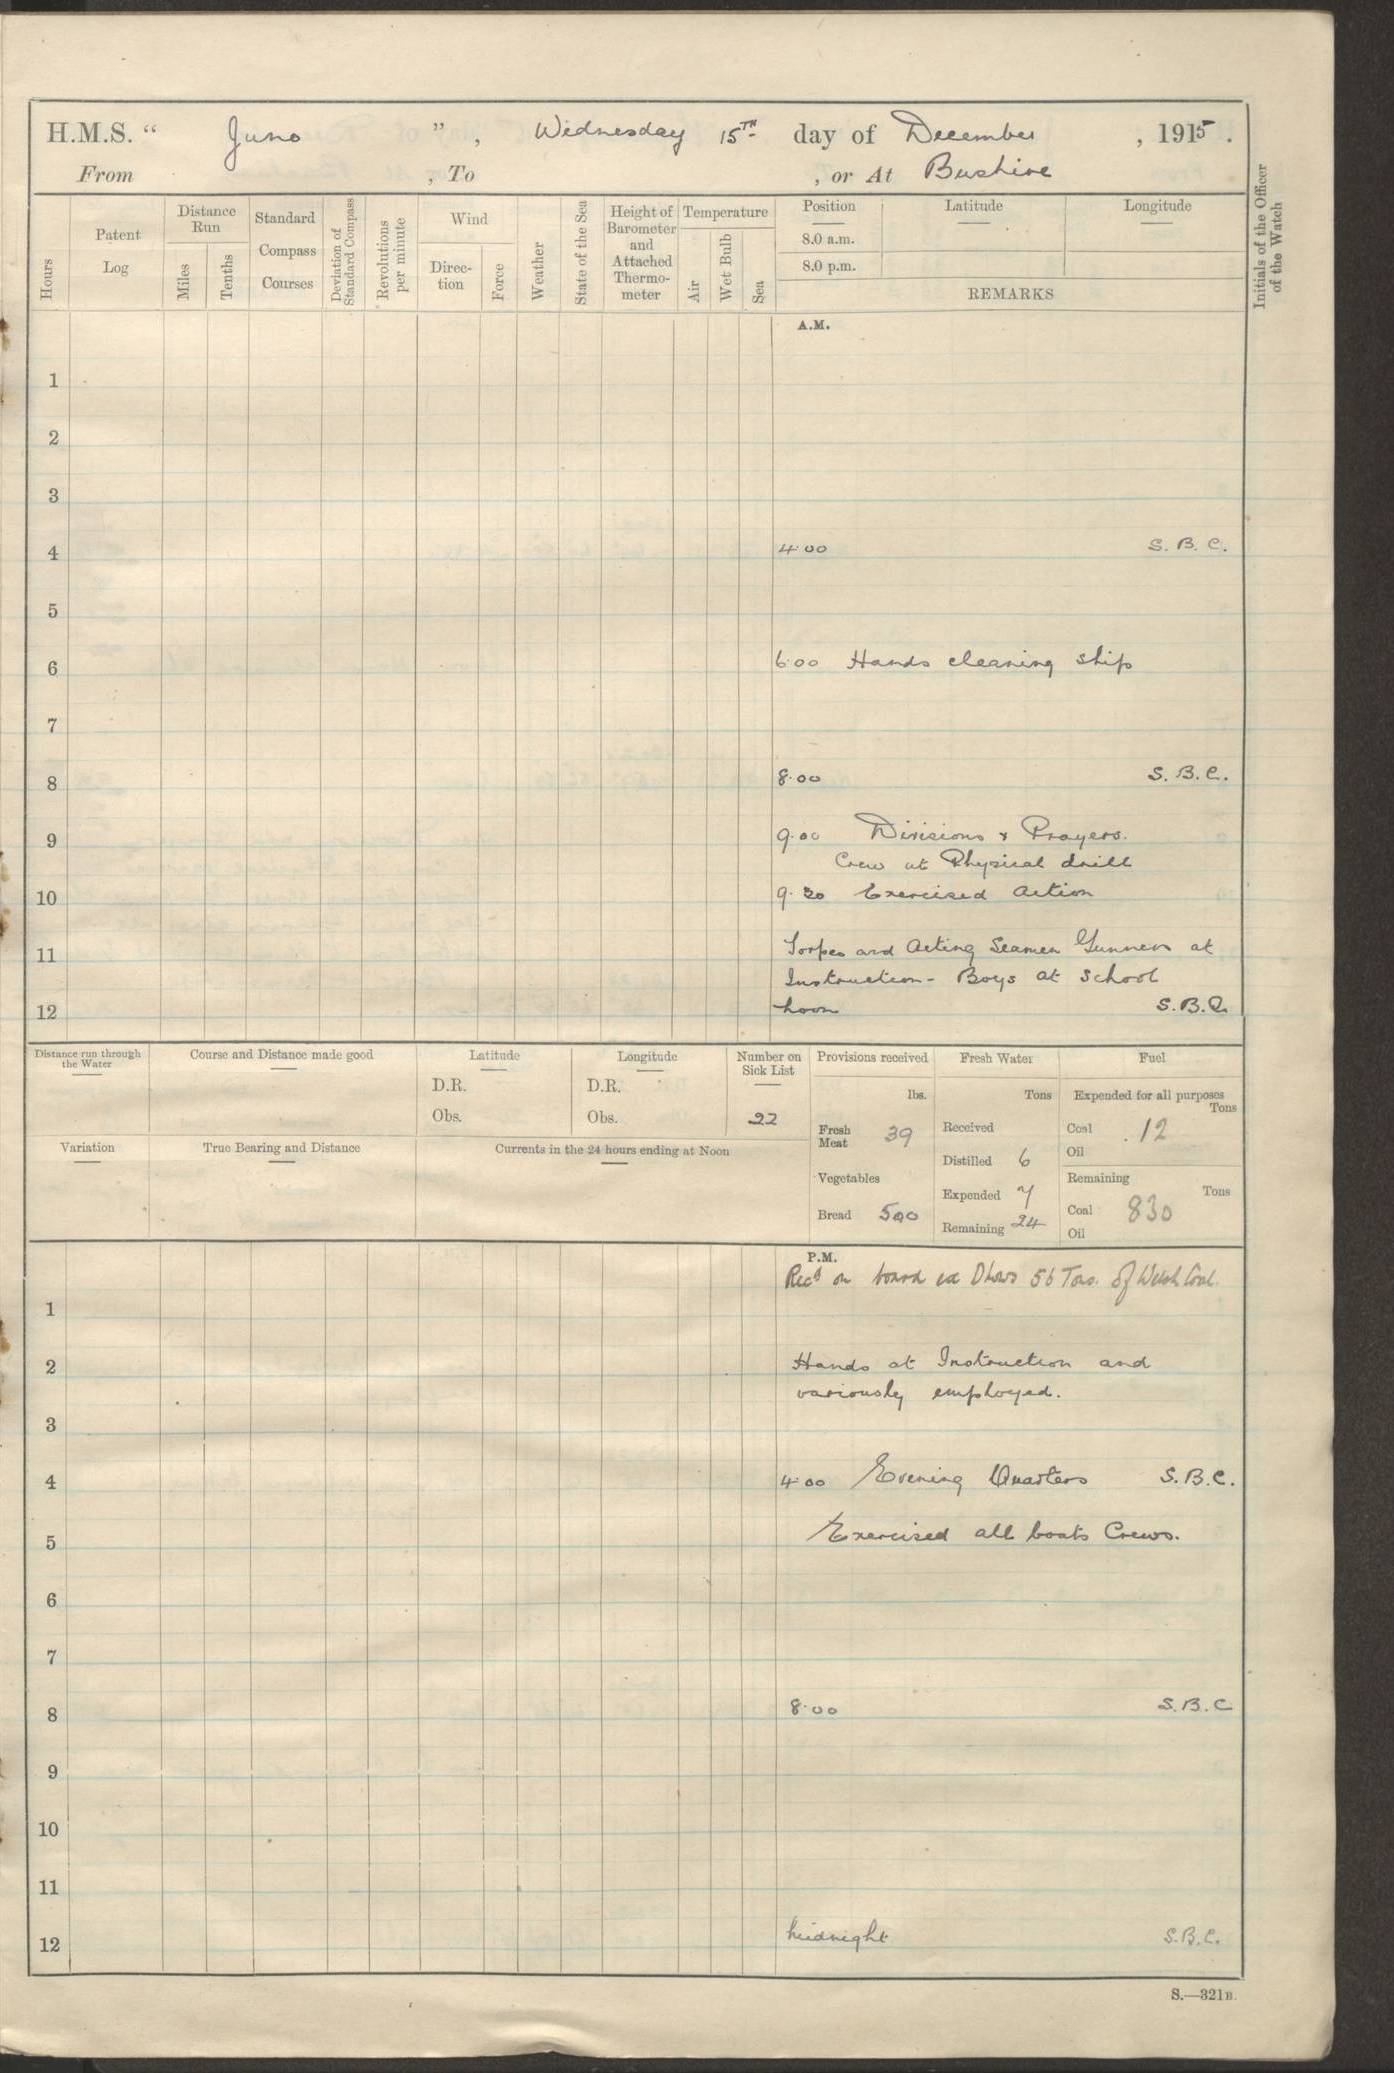 H.M.S. “ Juno ” , Wednesday 15TH day of December , 1915 .
From , To , or At Bushire
Hours
Patent Log
Distance Run
Miles
Tenths
Standard Compass Courses
Deviation of Standard Compass
Revolutions per minute
Wind
Direction
Force
Weather
State of the Sea
Height of Barometer and Attached Thermometer
Temperature
Air
Wet Bulb
Sea
Position Latitude Longitude
8.0 a.m.
8.0 p.m.
REMARKS
Initials of the Officer of the Watch
A.M.
1
2
3
4 4.00 S.B.C.
5
6 6.00 Hands cleaning ship
7
8 8.00 S.B.C.
9 9.00 Divisions & Prayers.
Crew at Physical drill
10 9.30 Exercised Action
11 Torpes and Acting Seamen Gunners at
Instruction - Boys at School
12 Noon S.B.C.
Distance run through the Water
Course and Distance made good
Latitude
D.R.
Obs.
Longitude
D.R.
Obs.
Number on Sick List
22
Provisions received
lbs.
Fresh Meat 39
Vegetables
Bread 500
Fresh Water
Tons
Received
Distilled 6
Expended 7
Remaining 24
Fuel
Expended for all purposes
Tons
Coal 12
Oil
Remaining
Tons
Coal 830
Oil
Variation
True Bearing and Distance
Currents in the 24 hours ending at Noon
P.M.
Recd on board ex Dhows 56 Tons. of Welsh Coal.
1
2 Hands at Instruction and
variously employed.
3
4 4.00 Evening Quarters S.B.C.
5 Exercised all boats Crews.
6
7
8 8.00 S.B.C
9
10
11
12 Midnight S.B.C.
S.—321B.